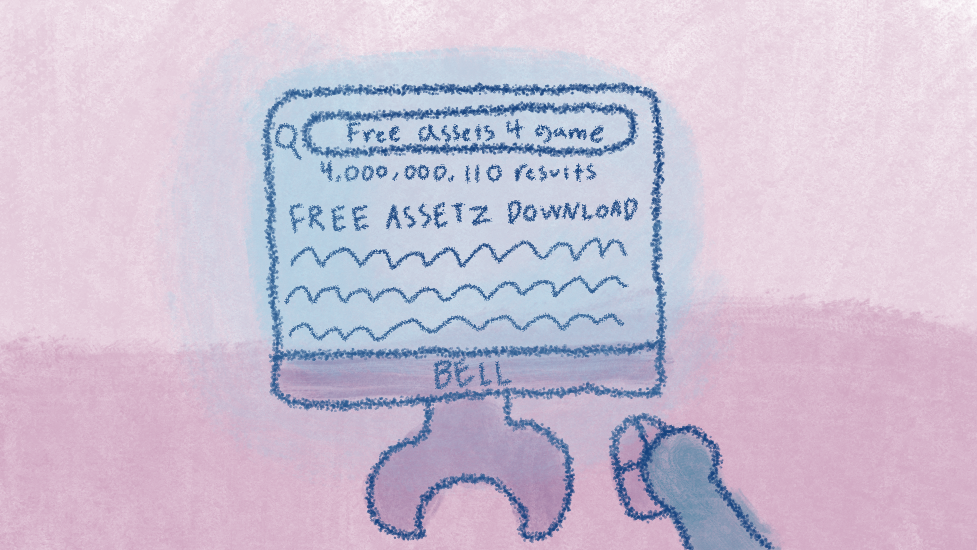 Free assets 4 game
4,000,000,110 results
FREE ASSETZ DOWNLOAD
BELL